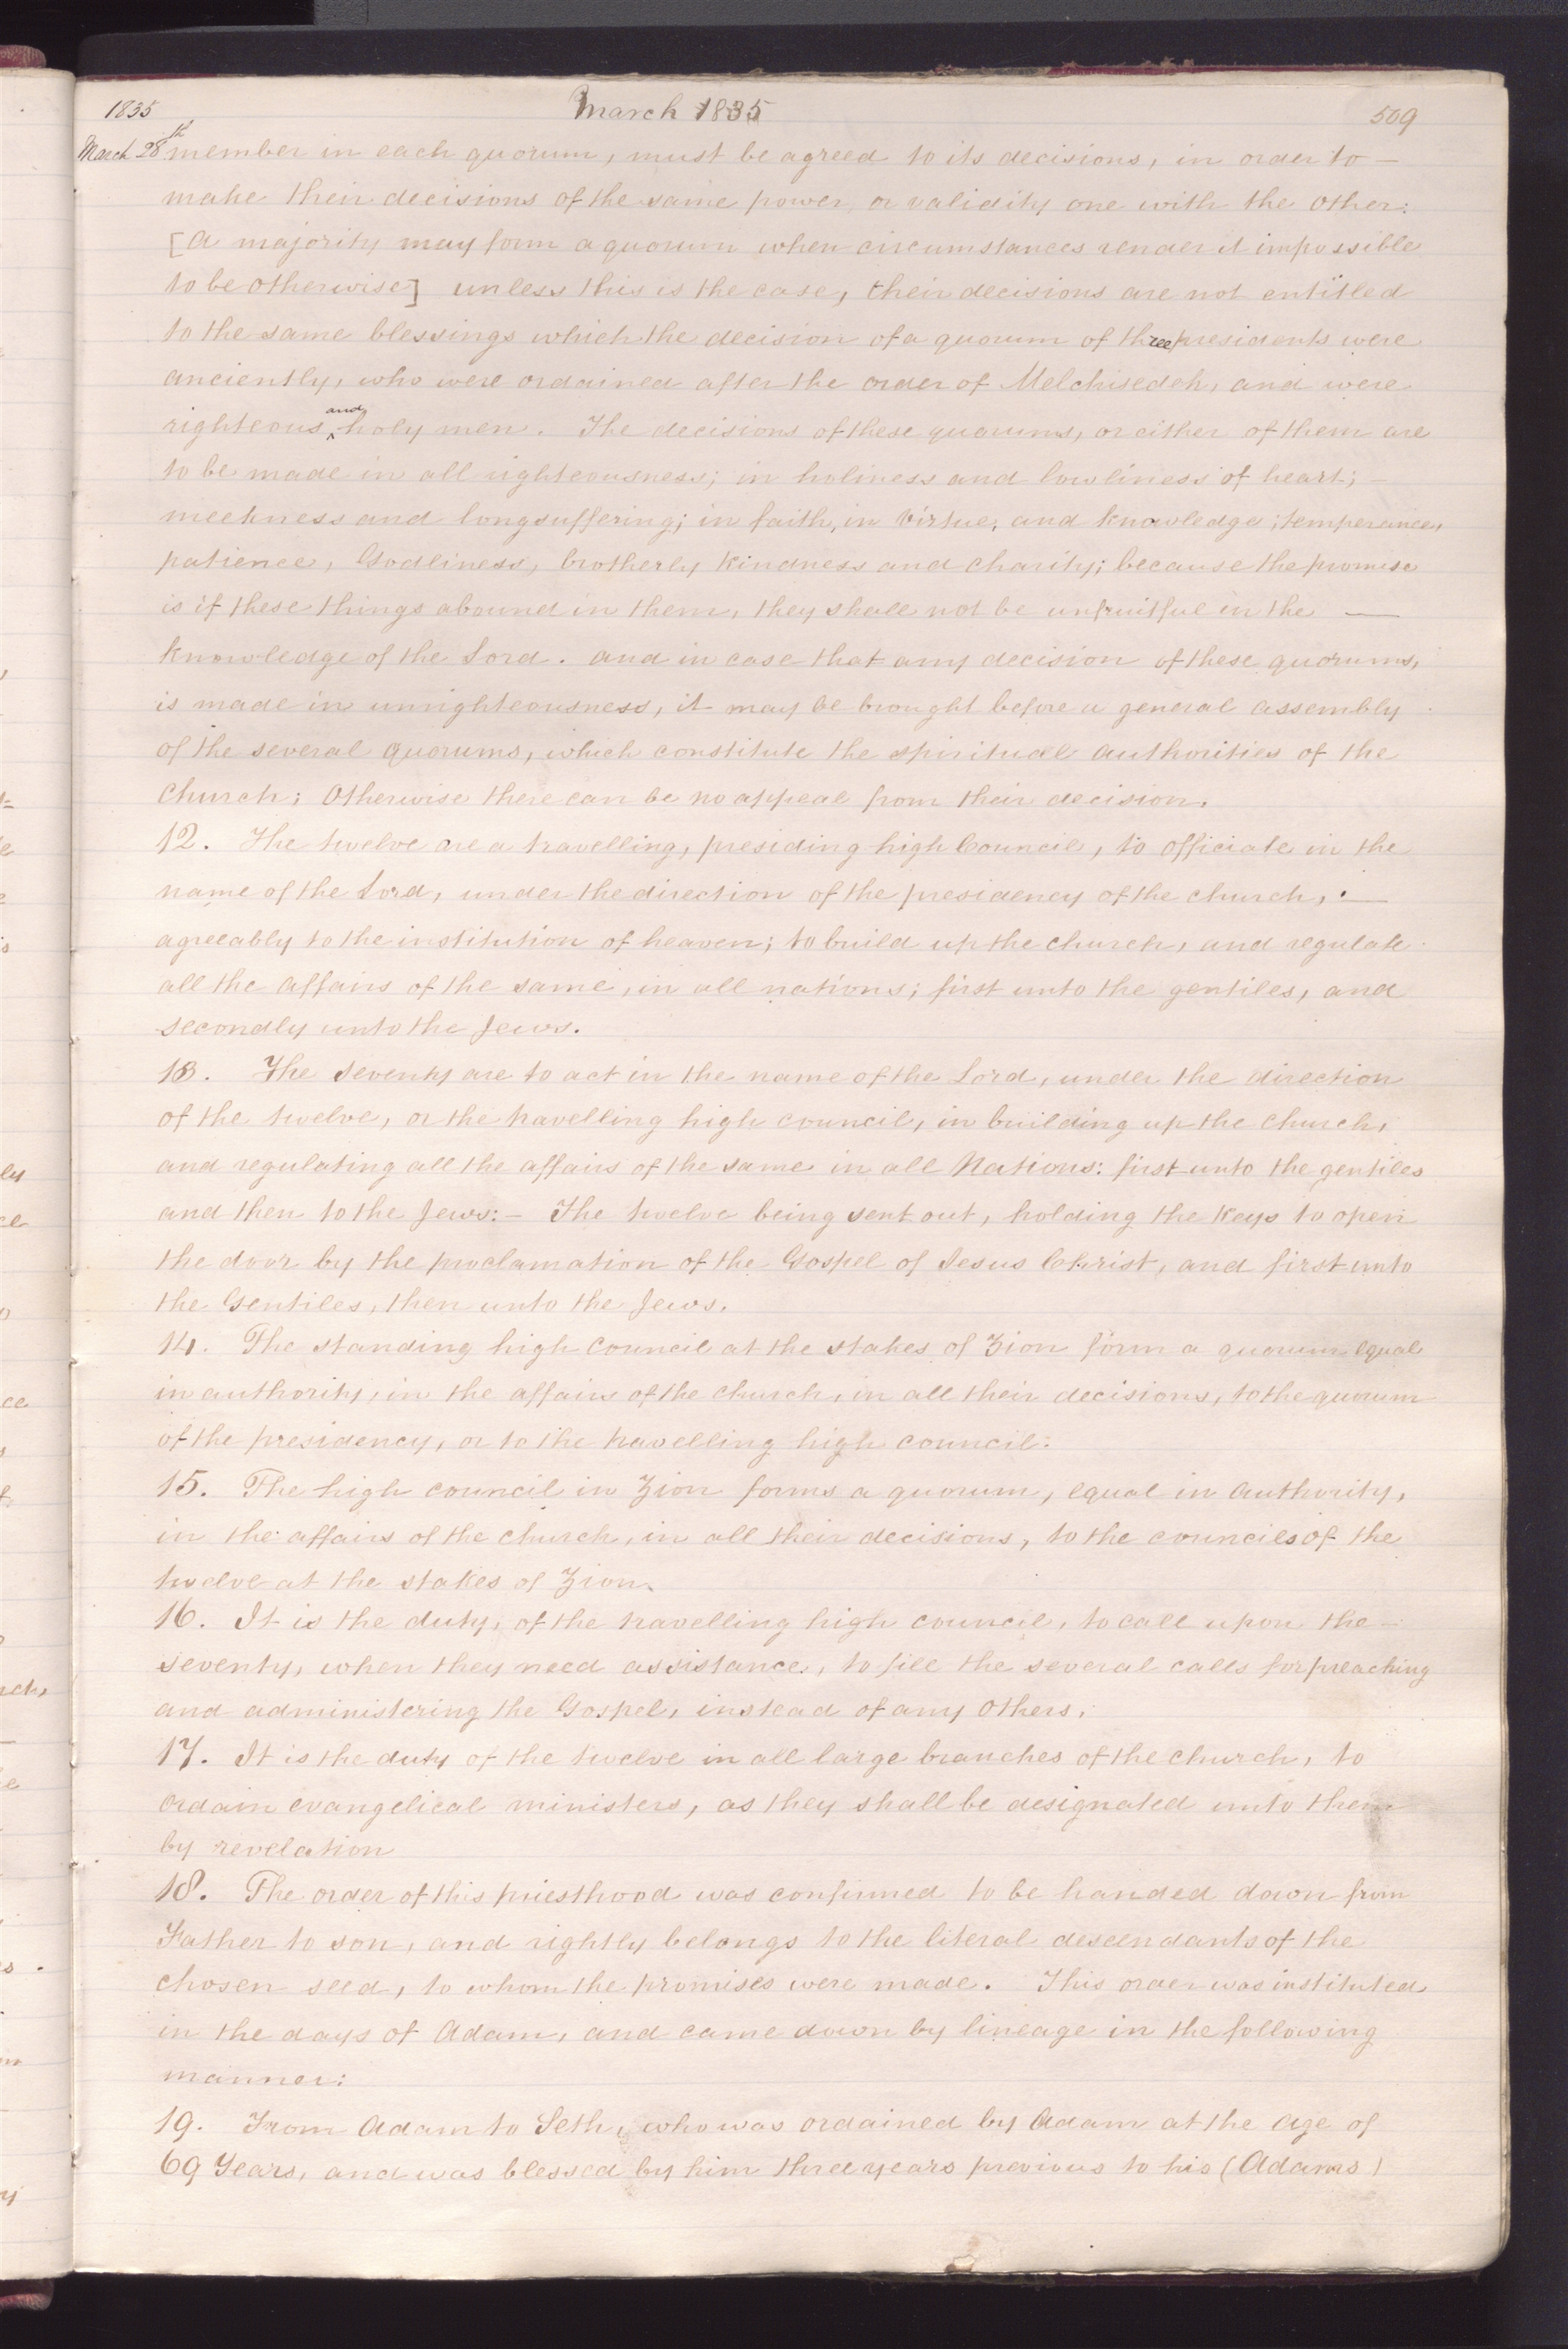 1835 March 1835 509
March 28th member in each quorum, must be agreed to its decisions, in order to —
make their decisions of the same power, or validity one with the other:
[A majority may form a quorum when circumstances render it impossible
to be otherwise] unless this is the case, their decisions are not entitled
to the same blessings which the decision of a quorum of three presidents were
anciently, who were ordained after the order of Melchisedek, and were
righteous and holy men. The decisions of these quorums, or either of them are
to be made in all righteousness; in holiness and lowliness of heart; —
meekness and longsuffering; in faith, in virtue, and knowledge; temperance,
patience, Godliness, brotherly kindness and charity; because the promise
is if these things abound in them, they shall not be unfruitful in the —
knowledge of the Lord. and in case that any decision of these quorums,
is made in unrighteousness, it may be brought before a general assembly
of the several quorums, which constitute the spiritual authorities of the
church; Otherwise there can be no appeal from their decision.
12. The twelve are a travelling, presiding high Council, to officiate in the
name of the Lord, under the direction of the presidency of the church, —
agreeably to the institution of heaven; to build up the church, and regulate
all the affairs of the same, in all nations; first unto the gentiles, and
secondly unto the Jews.
13. The Seventy are to act in the name of the Lord, under the direction
of the twelve, or the travelling high council, in building up the church,
and regulating all the affairs of the same in all Nations: first unto the gentiles
and then to the Jews:— The twelve being sent out, holding the keys to open
the door by the proclamation of the Gospel of Jesus Christ, and first unto
the Gentiles, then unto the Jews.
14. The standing high Council at the stakes of Zion form a quorum equal
in authority, in the affairs of the church, in all their decisions, to the quorum
of the presidency, or to the travelling high council.
15. The high council in Zion forms a quorum, equal in authority,
in the affairs of the church, in all their decisions, to the councils of the
twelve at the stakes of Zion.
16. It is the duty, of the travelling high council, to call upon the —
seventy, when they need assistance, to fill the several calls for preaching
and administering the Gospel, instead of any others.
17. It is the duty of the twelve in all large branches of the church, to
ordain evangelical ministers, as they shall be designated unto them
by revelation
18. The order of this priesthood was confirmed to be handed down from
Father to son, and rightly belongs to the literal descendants of the
chosen seed, to whom the promises were made. This order was instituted
in the days of Adam, and came down by lineage in the following
manner:
19. From Adam to Seth, who was ordained by Adam at the age of
69 Years, and was blessed by him three years previous to his (Adams)